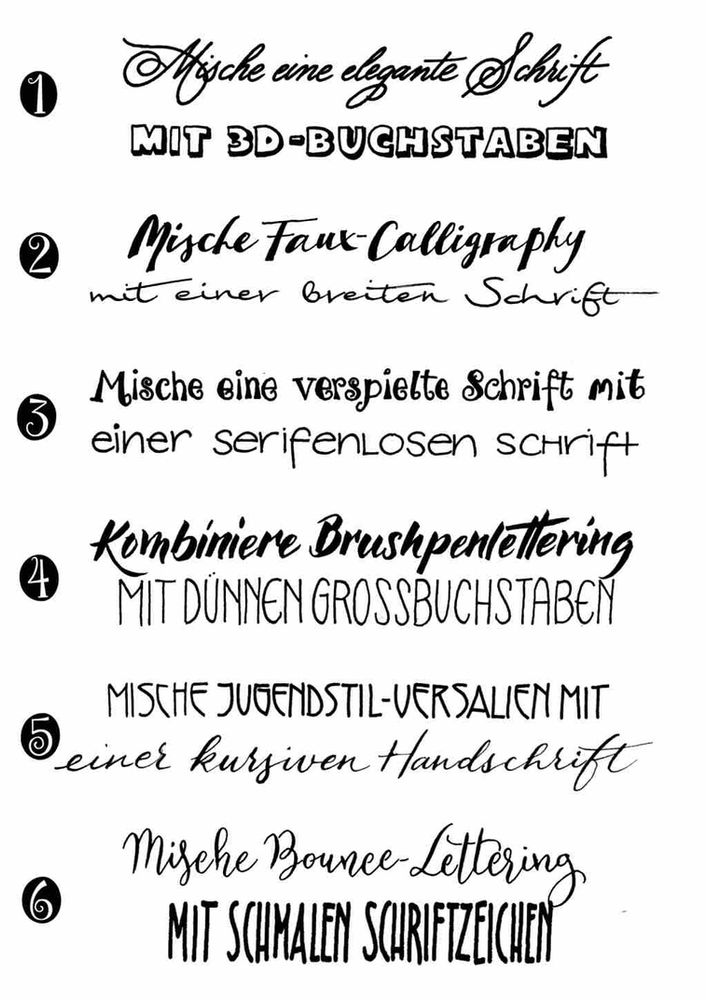 1
Mische eine elegante Schrift
MIT 3D-BUCHSTABEN
2
Mische Faux-Calligraphy
mit einer breiten Schrift
3
Mische eine verspielte Schrift mit
einer serifenlosen schrift
4
Kombiniere Brushpenlettering
MIT DÜNNEN GROSSBUCHSTABEN
5
MISCHE JUGENDSTIL-VERSALIEN MIT
einer kursiven Handschrift
6
Mische Bounce-Lettering
MIT SCHMALEN SCHRIFTZEICHEN